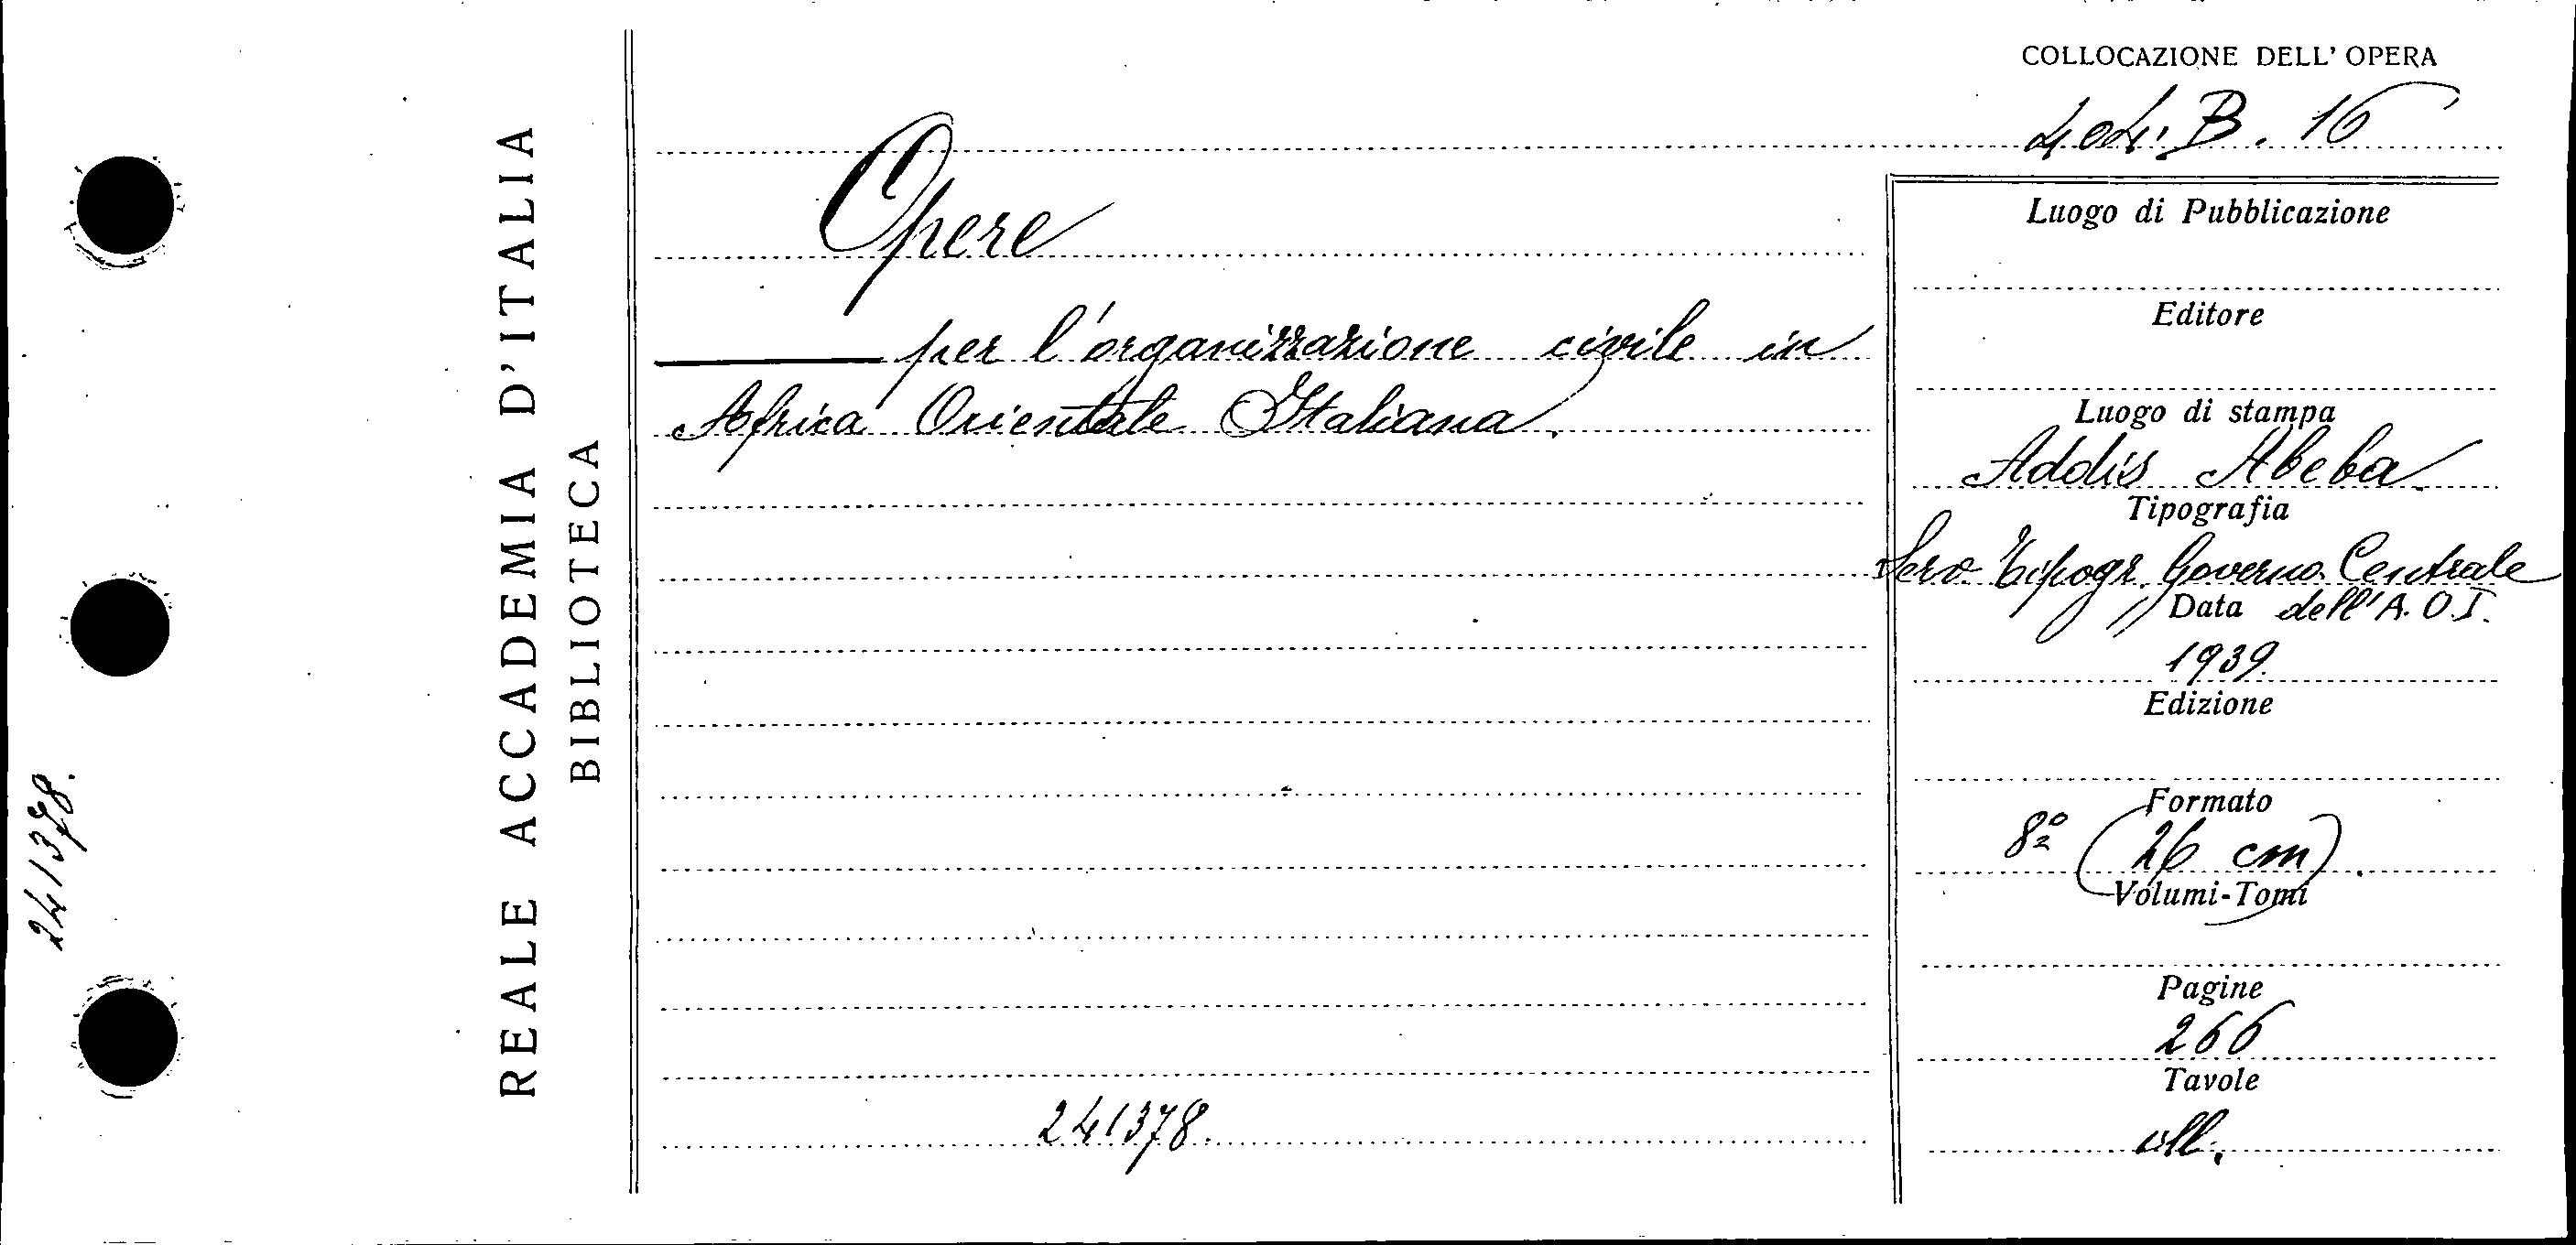 COLLOCAZIONE DELL' OPERA
404. B. 16
REALE ACCADEMIA D'ITALIA
BIBLIOTECA
241378.
Opere
per l'organizzazione civile in
Africa Orientale Italiana.
241378.
Luogo di Pubblicazione
Editore
Luogo di stampa
Addis Abeba
Tipografia
Serv. Tipogr. Governo Centrale
dell'A.O.I.
Data
1939.
Edizione
Formato
8º (26 cm).
Volumi-Tomi
Pagine
266
Tavole
ill.